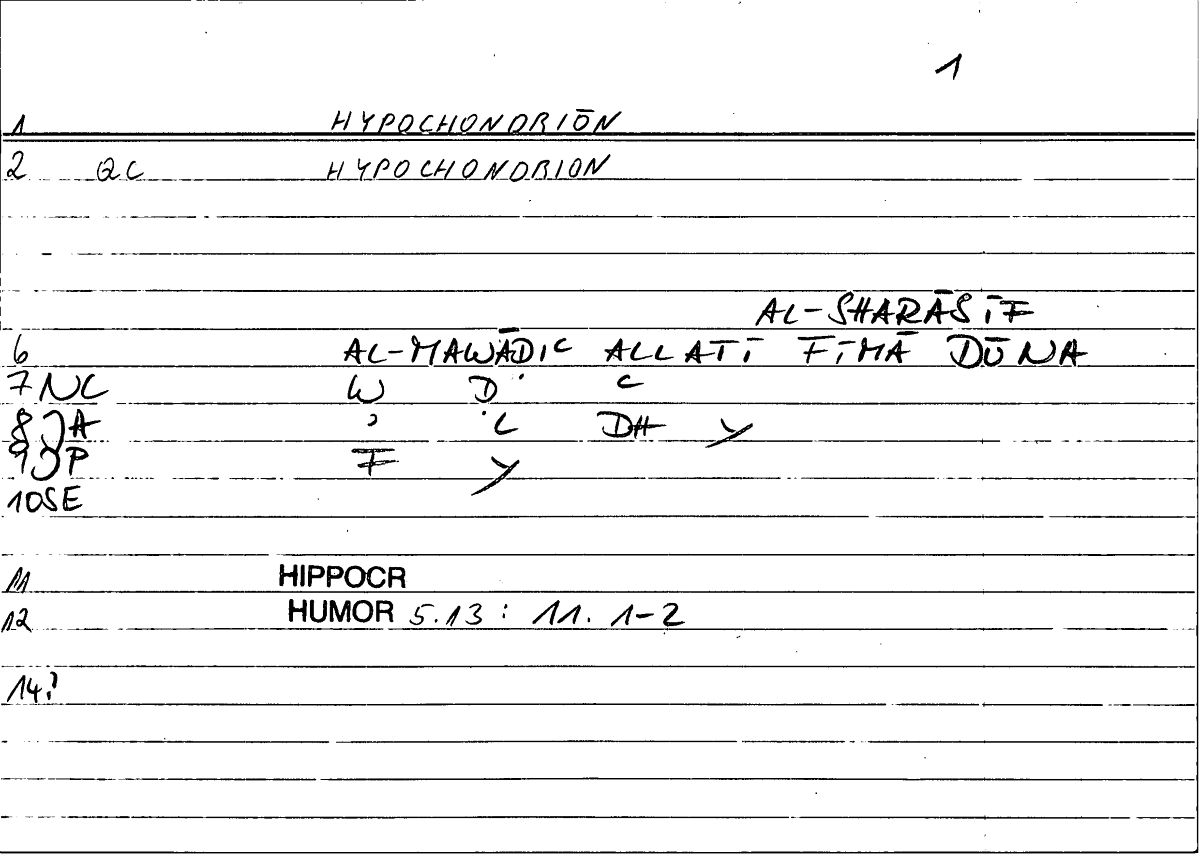 1
1 HYPOCHONDRIŌN
2 QC HYPOCHONDRION
AL-SHARĀSĪF
6 AL-MAWĀDIC ALLATĪ FĪMĀ DŪNA
7 NC W Ḍ C
8 A ʾ ʿL DH Y
9 P F Y
10 SE
11 HIPPOCR
12 HUMOR 5.13 : 11. 1-2
14?